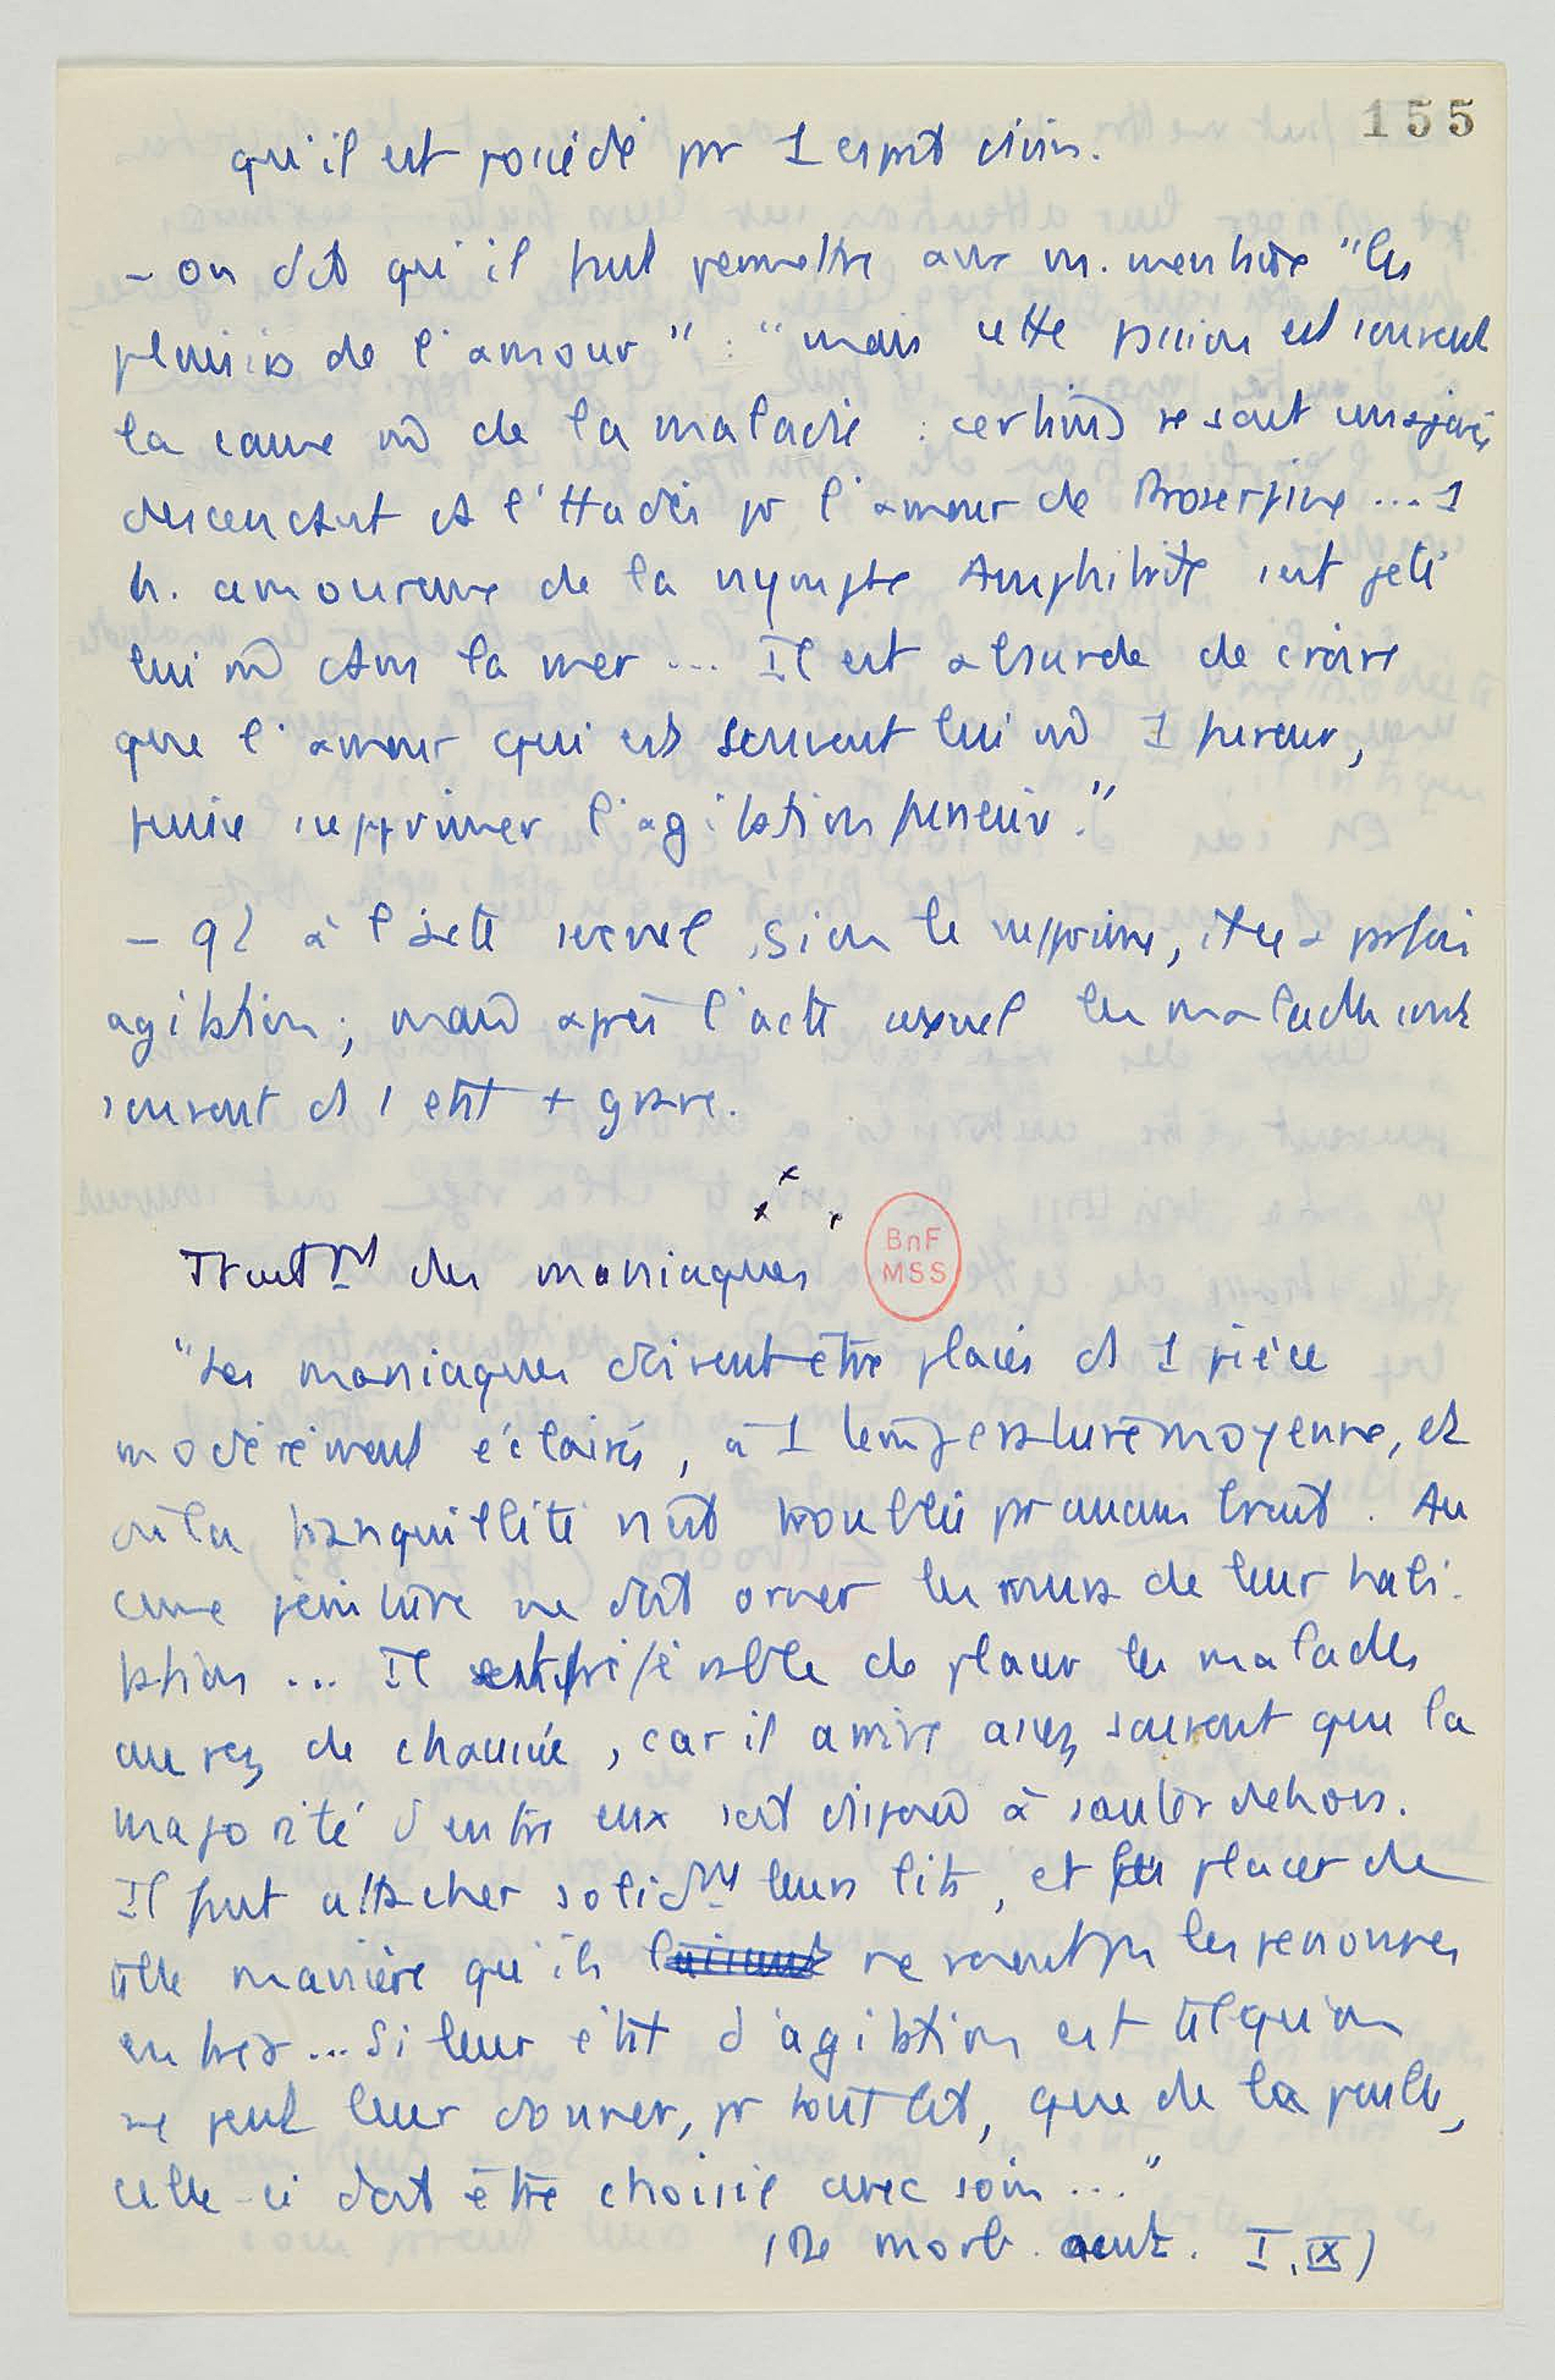 155
qu'il est possédé pr 1 esprit divin.
- on dit qu'il faut permettre aux m. mentaux "les
plaisirs de l'amour" : "mais cette passion est souvent
la cause m̂ de la maladie : certains se sont
descendant ds l'Hadès pr l'amour de Proserpine ... 1
h. amoureux de la nymphe Amphitrite s'est jeté
lui m̂ dans la mer ... Il est absurde de croire
que l'amour qui est souvent lui m̂ 1 fureur,
puisse supprimer l'agitation furieuse."
- à l'acte sexuel, si on le supprime, parfois
agitation ; mais après l'acte sexuel les malades sont
souvent ds 1 état + grave.
x x x
Trait^mt des maniaques
"Les maniaques doivent être placés ds 1 pièce
modérément éclairée, à 1 température moyenne, et
où la tranquillité n'est troublée pr aucun bruit. Au
cune peinture ne doit orner les murs de leur habi-
tation ... Il est préférable de placer les malades
au rez de chaussée, car il arrive assez souvent que la
majorité d'entre eux soit disposée à sauter dehors.
Il faut attacher solid^mt leurs lits, et les placer de
telle manière qu'ils ne voient pas les personnes
entrer ... Si leur état d'agitation est tel qu'on
ne peut leur donner, pr tout lit, que de la paille,
celle-ci doit être choisie avec soin ..."
(De morb. acut. I, IX)
BnF
MSS